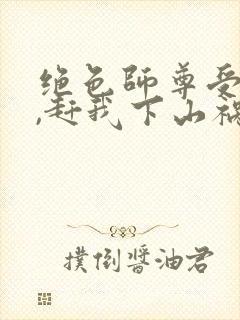 绝色师尊受
,赶我下山祸
撲倒醬油君